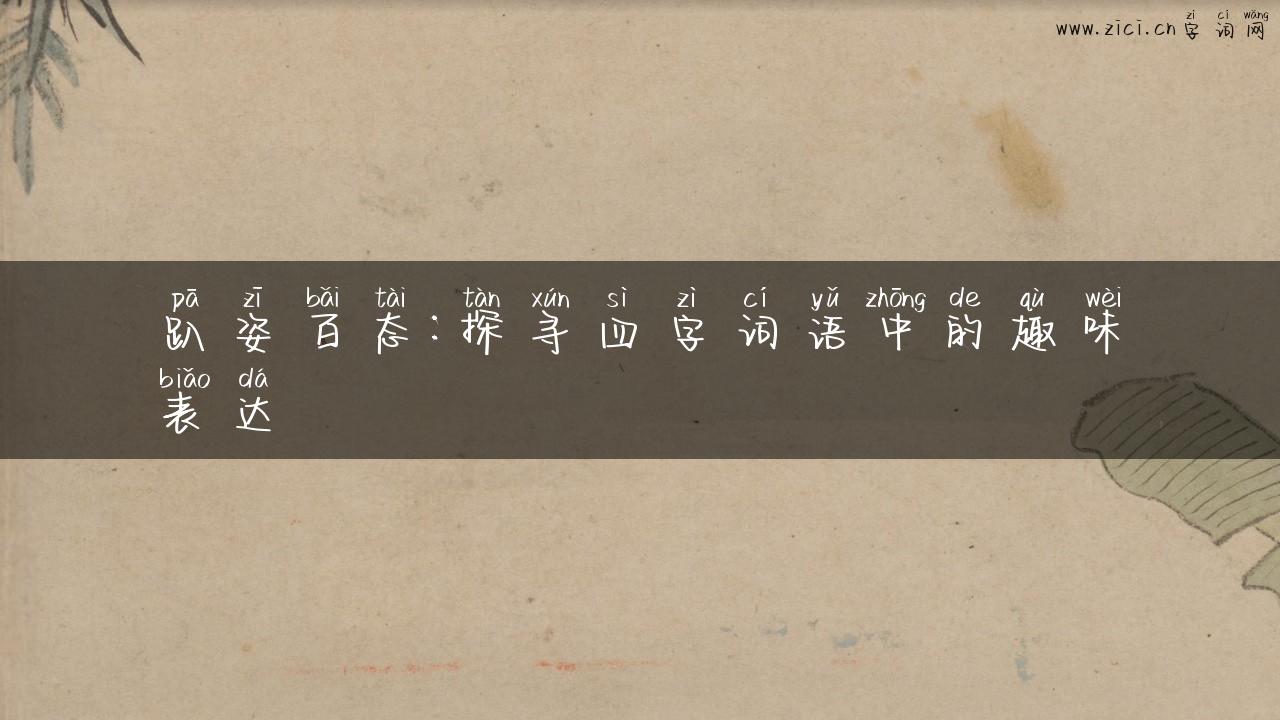 zì cí wǎng
www.zici.cn 字词网
pā zī bǎi tài tàn xún sì zì cí yǔ zhōng de qù wèi
趴姿百态:探寻四字词语中的趣味
biǎo dá
表达